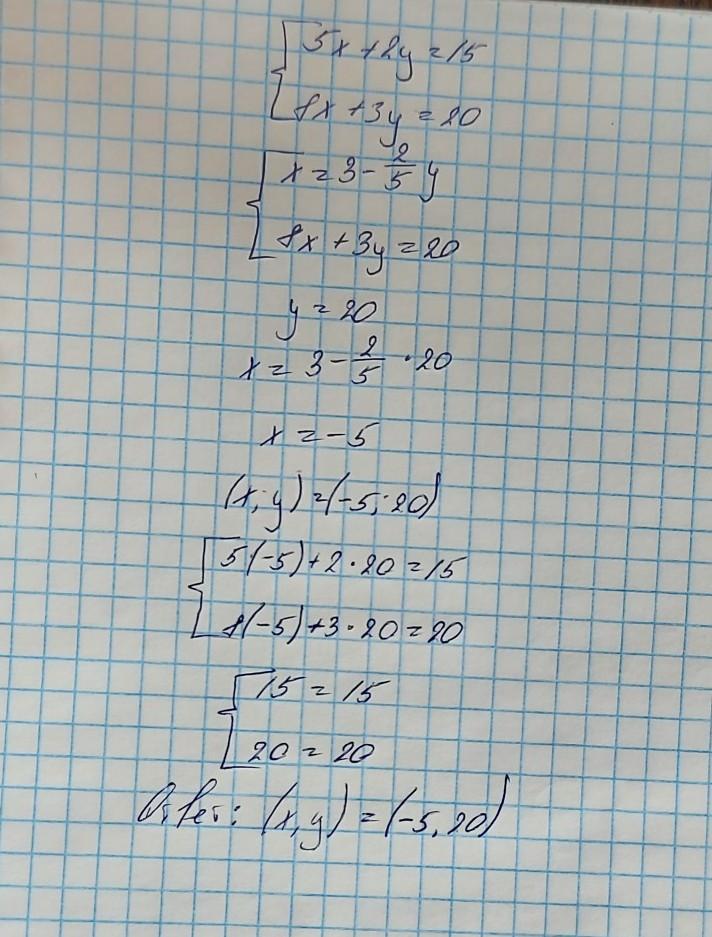 5x + 2y = 15
8x + 3y = 20
x = 3 - 2/5 y
8x + 3y = 20
y = 20
x = 3 - 2/5 · 20
x = -5
(x; y) = (-5; 20)
5(-5) + 2 · 20 = 15
8(-5) + 3 · 20 = 20
15 = 15
20 = 20
Ответ: (x, y) = (-5, 20)